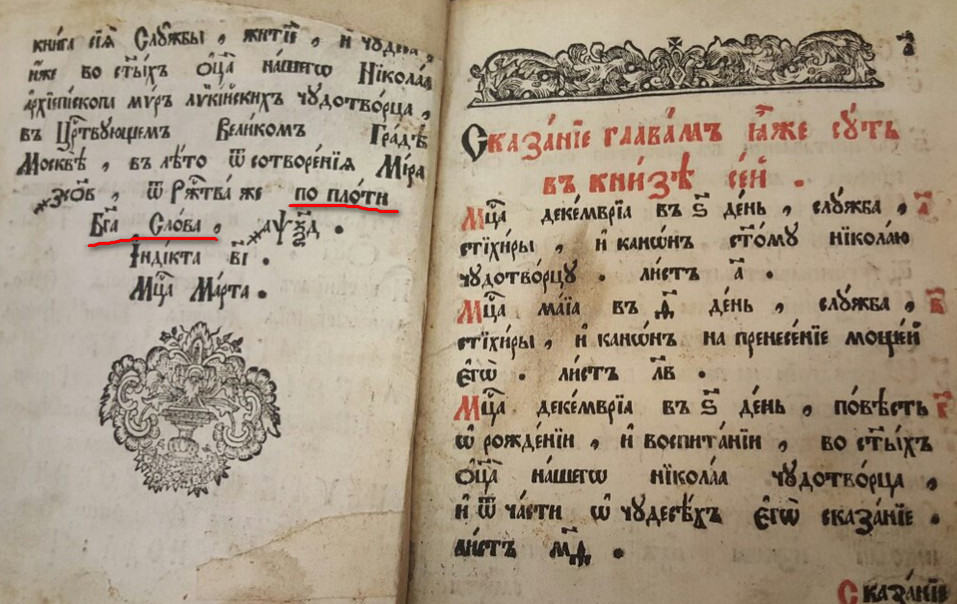 книга сїѧ̀ Слꙋ́жбы , житїѐ , и҆ чꙋдеса̀ ,
и҆́же во ст҃ы́хъ ѻ҆ц҃а̀ на́шегѡ Нїкола́а
а҆рхїепі́скопа мѵръ лѷкі́йскихъ чꙋдотво́рца ,
въ Црⷭ҇твующемъ Вели́комъ Гра́дѣ
Москвѣ̀ , въ лѣ́то ѿ сотворе́нїѧ Мі́ра
҂зсо҃в , ѿ Рж҃тва́ же по пло́ти
Бг҃а Сло́ва , ҂аѱѯ҃д .
І҆ндї́кта в҃і .
Мц҃а Ма́рта .
Сказа́нїе глава́мъ ꙗ҆̀же сꙋ́ть
въ кни́зѣ се́й .
Мц҃а деке́мврїа въ ѕ҃ де́нь , слꙋ́жба , а҃
стїхи́ры , и҆ канѡ́нъ ст҃о́мꙋ нїкола́ю
чꙋдотво́рцꙋ . ли́стъ а҃ .
Мц҃а ма́їа въ ѳ҃ де́нь , слꙋ́жба , в҃
стїхи́ры , и҆ канѡ́нъ на пренесе́нїе моще́й
є҆гѡ̀ . ли́стъ л҃в .
Мц҃а деке́мврїа въ ѕ҃ де́нь , по́вѣсть г҃
ѡ҆ рожде́нїи , и҆ воспита́нїи , во ст҃ы́хъ
ѻ҆ц҃а̀ на́шегѡ нїкола́а чꙋдотво́рца ,
и҆ ѿ ча́сти ѡ҆ чꙋдесѣ́хъ є҆гѡ̀ сказа́нїе .
ли́стъ м҃д .
Сказа́нїе